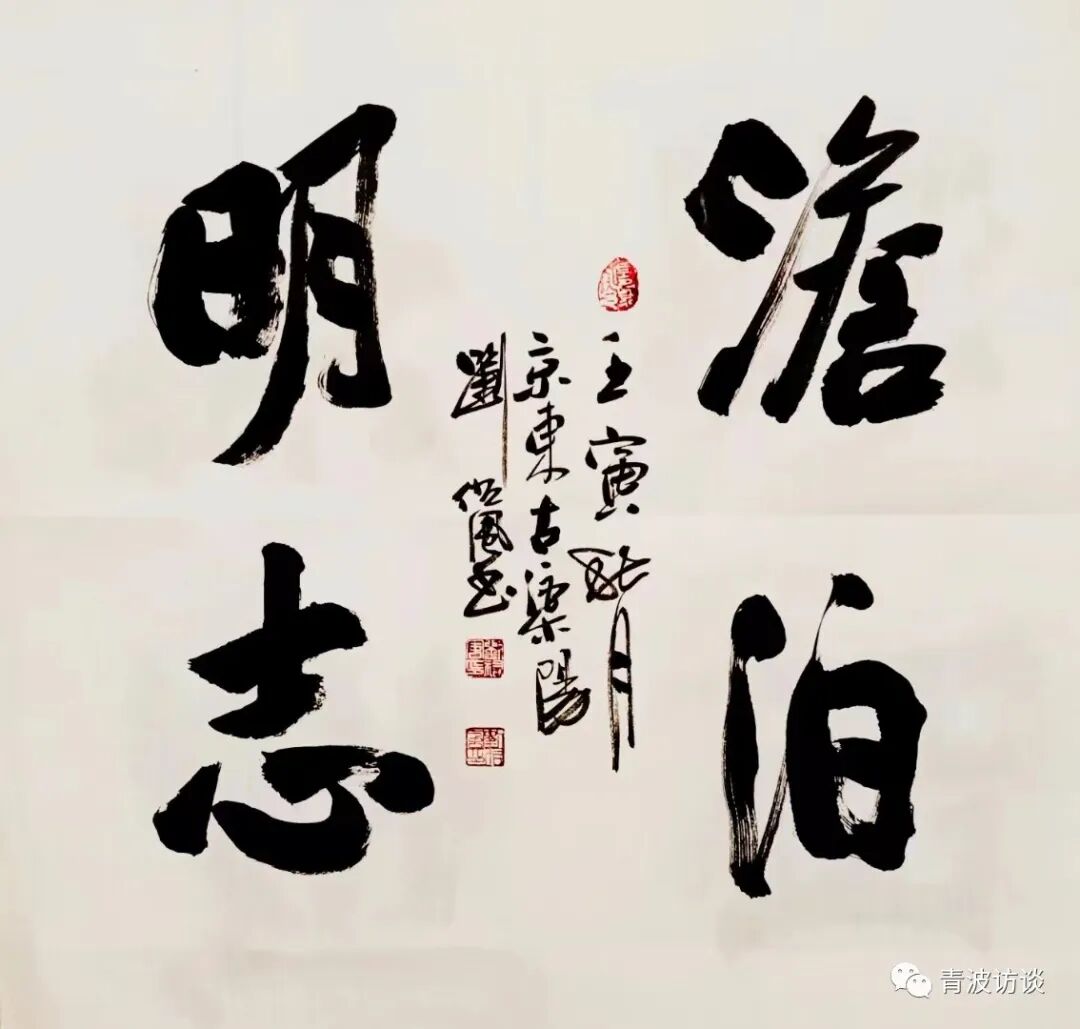 澹泊
明志
壬寅 月
京東古渠陽
劉 書
青波访谈